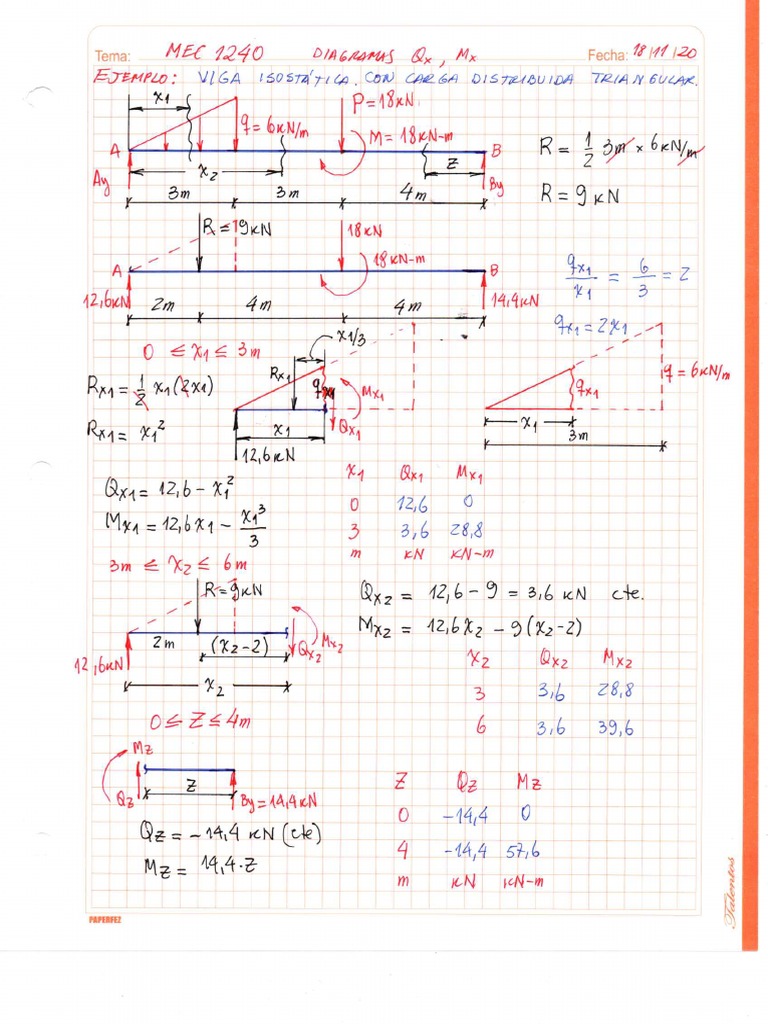 Tema: MEC 1240 DIAGRAMAS Qx, Mx Fecha: 18/11/20
EJEMPLO: VIGA ISOSTÁTICA. CON CARGA DISTRIBUIDA TRIANGULAR.
x1
P=18kN
q=6kN/m
M=18kN-m
A
B
x2
Z
Ay
By
3m 3m 4m
R = 1/2 3m × 6kN/m
R = 9 kN
R=9kN
18kN
18kN-m
A
B
12,6kN
14,4kN
2m 4m 4m
qx1/x1 = 6/3 = 2
qx1 = 2x1
0 ≤ x1 ≤ 3m
x1/3
Rx1
qx1
Mx1
Qx1
x1
12,6kN
Rx1 = 1/2 x1(2x1)
Rx1 = x1²
q=6kN/m
qx1
x1
3m
Qx1 = 12,6 - x1²
Mx1 = 12,6x1 - x1³/3
x1 Qx1 Mx1
0 12,6 0
3 3,6 28,8
m kN kN-m
3m ≤ x2 ≤ 6m
R=9kN
2m (x2-2)
Mx2
Qx2
12,6kN
x2
Qx2 = 12,6 - 9 = 3,6 kN cte.
Mx2 = 12,6x2 - 9(x2-2)
x2 Qx2 Mx2
3 3,6 28,8
6 3,6 39,6
0 ≤ Z ≤ 4m
Mz
Z
Qz
By=14,4kN
Qz = -14,4 kN (cte)
Mz = 14,4·Z
Z Qz Mz
0 -14,4 0
4 -14,4 57,6
m kN kN-m
PAPERFEZ
Talentos